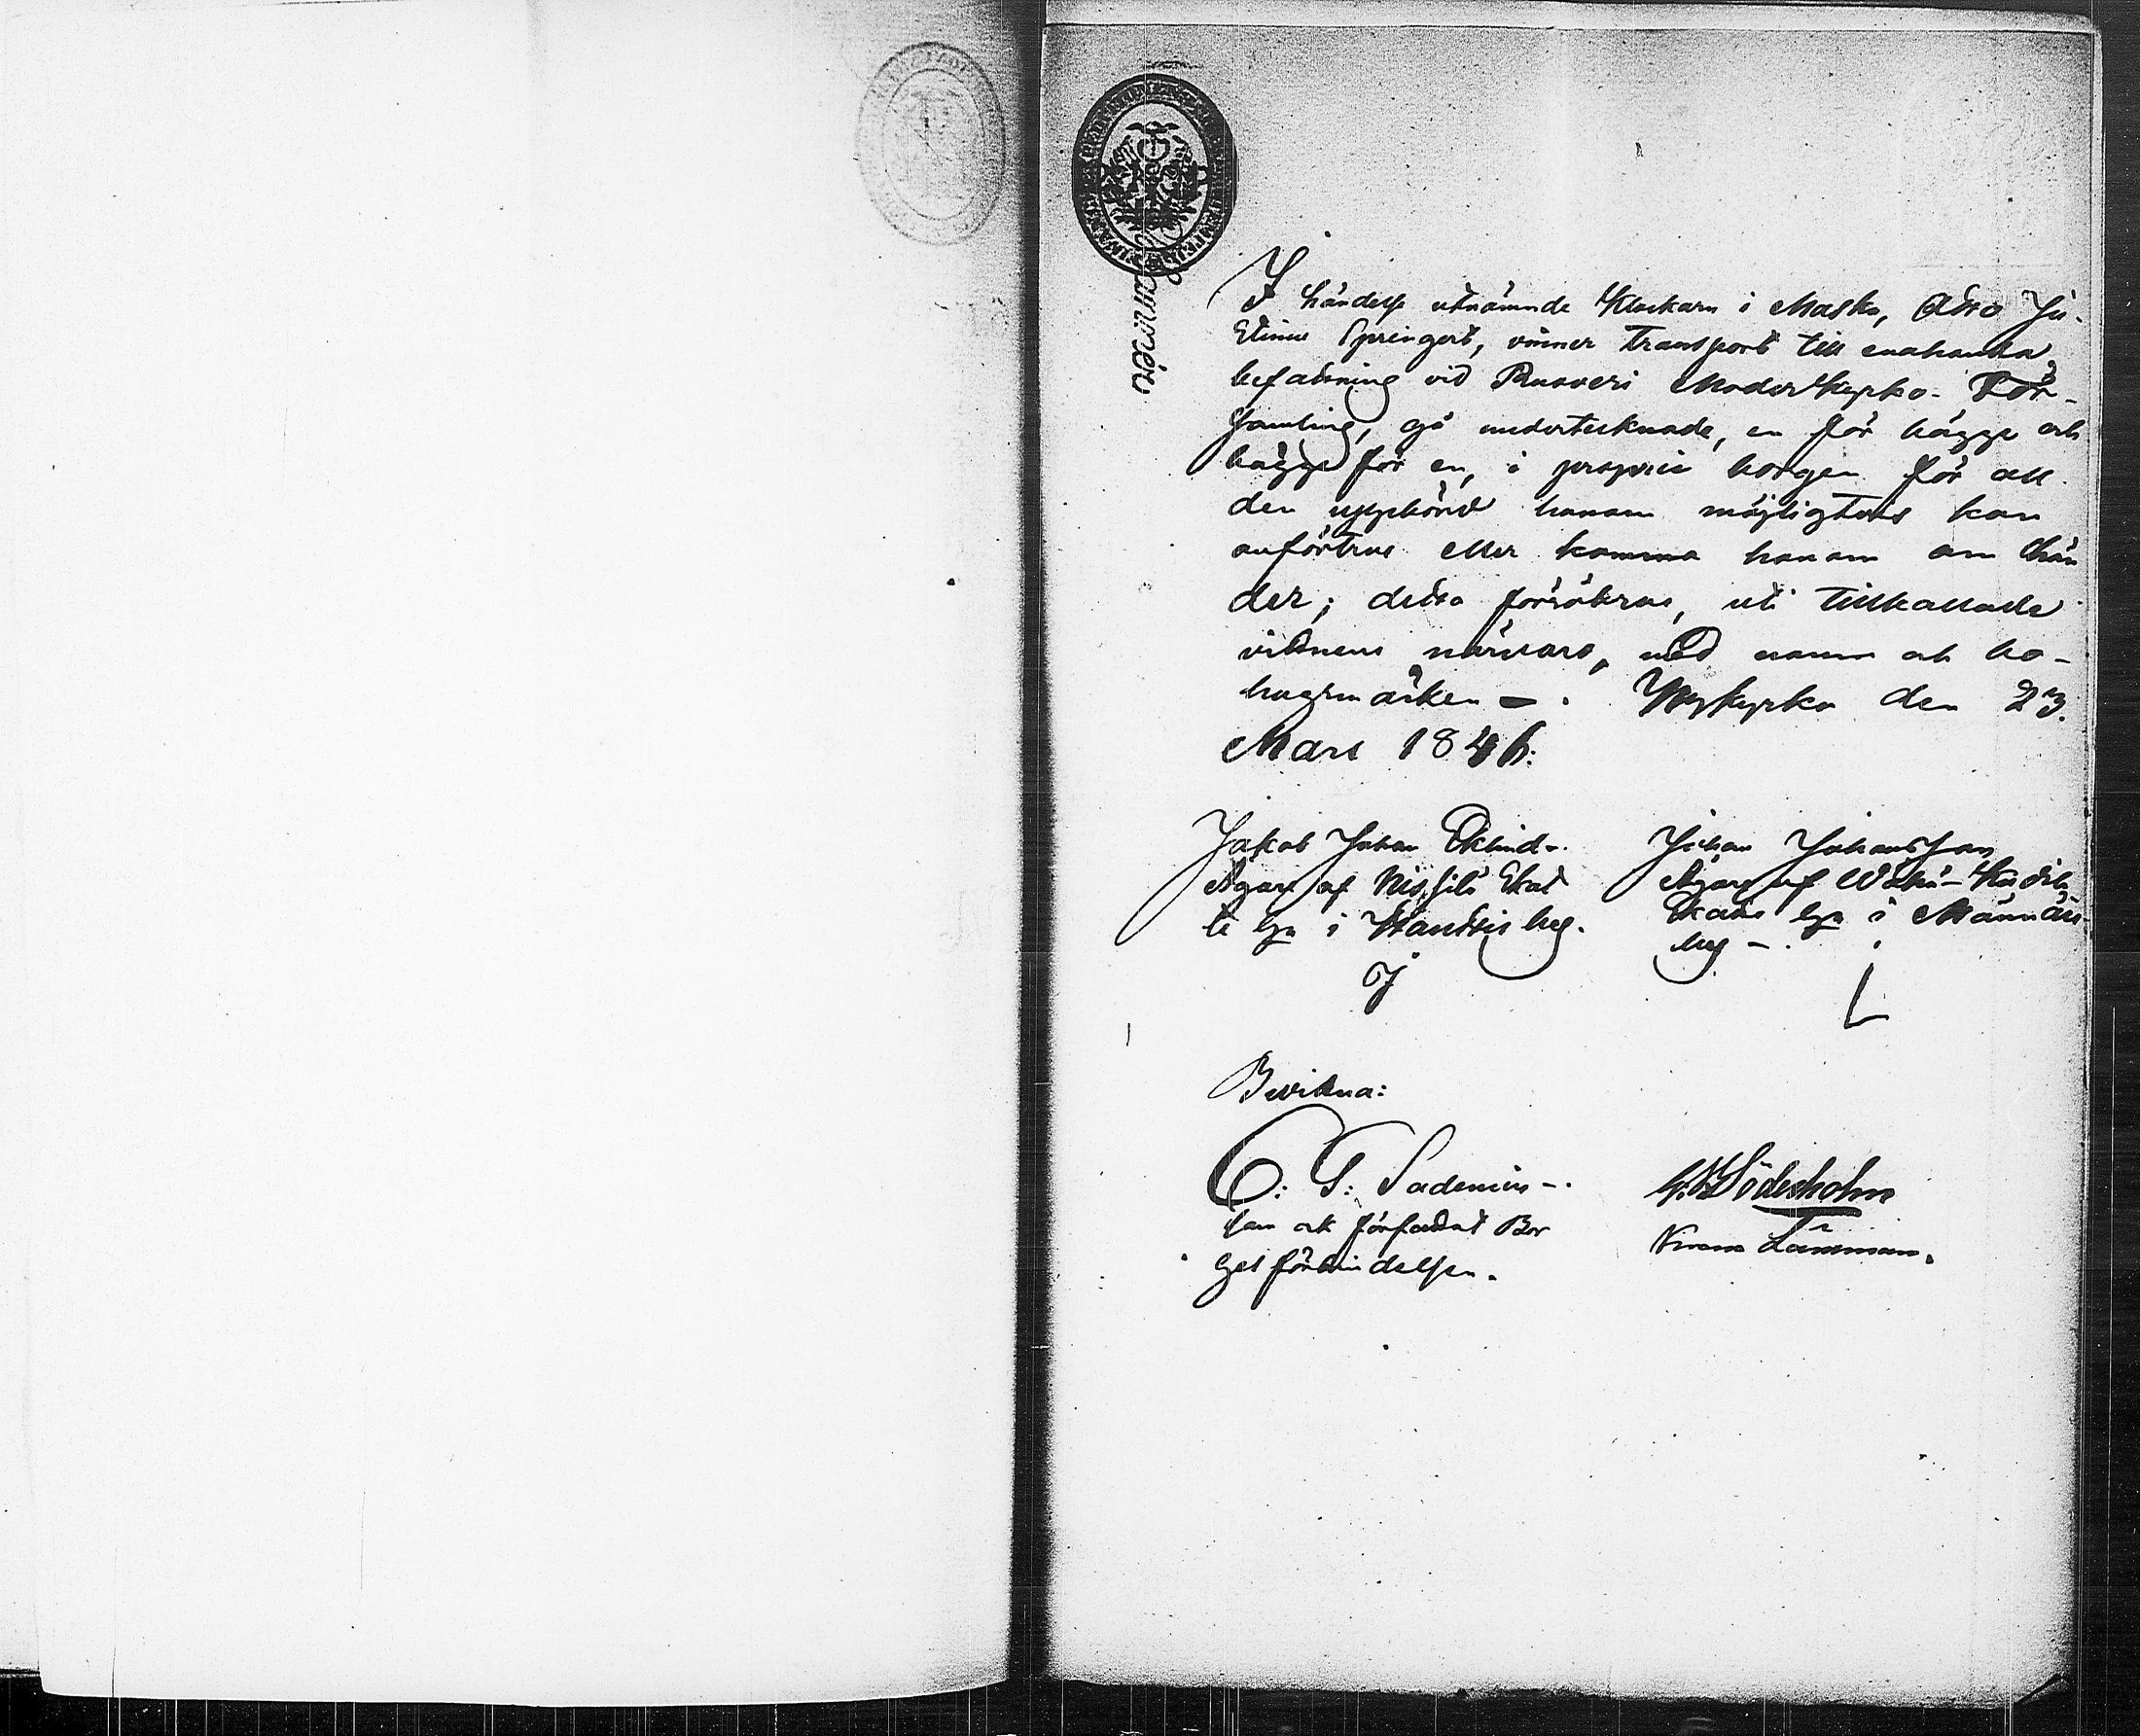 I händelse utnämnde Klockarn i Masko, Otto Ju-
stinus Springert, vinner transport till enahanda
befattning vid Rusko Moderkyrko-För-
samling, gå undertecknade, en för bägge och
bägge för en, i proprie borgen för all
den uppbörd honom möjligtvis kan
anförtros eller komma honom om hän
der; detta försäkras, uti tillkallade
vittnens närvaro, med namn och bo-
bagsmärken —. Nykyrko den 23.
Mars 1846.
Jakob Johan Eklind -.
Ägare af Nissilä Skat
te hn i Hautvis by.
Johan Johansson
Ägare af
Skatte hn i Männäis
by -.
Bevittna:
C: G: Sadenius -.
som ock författat Bor
gesförbindelsen.
Söderholm
Länsman.